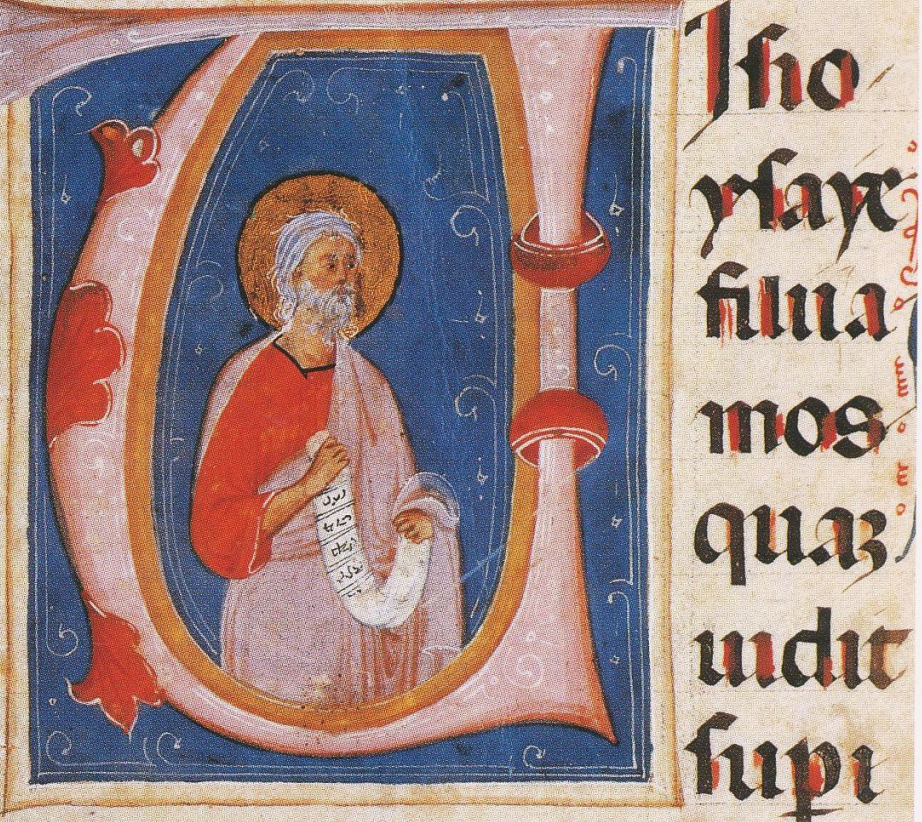 VIsio
ysaye
filii a
mos
quaz
uidit
sup i